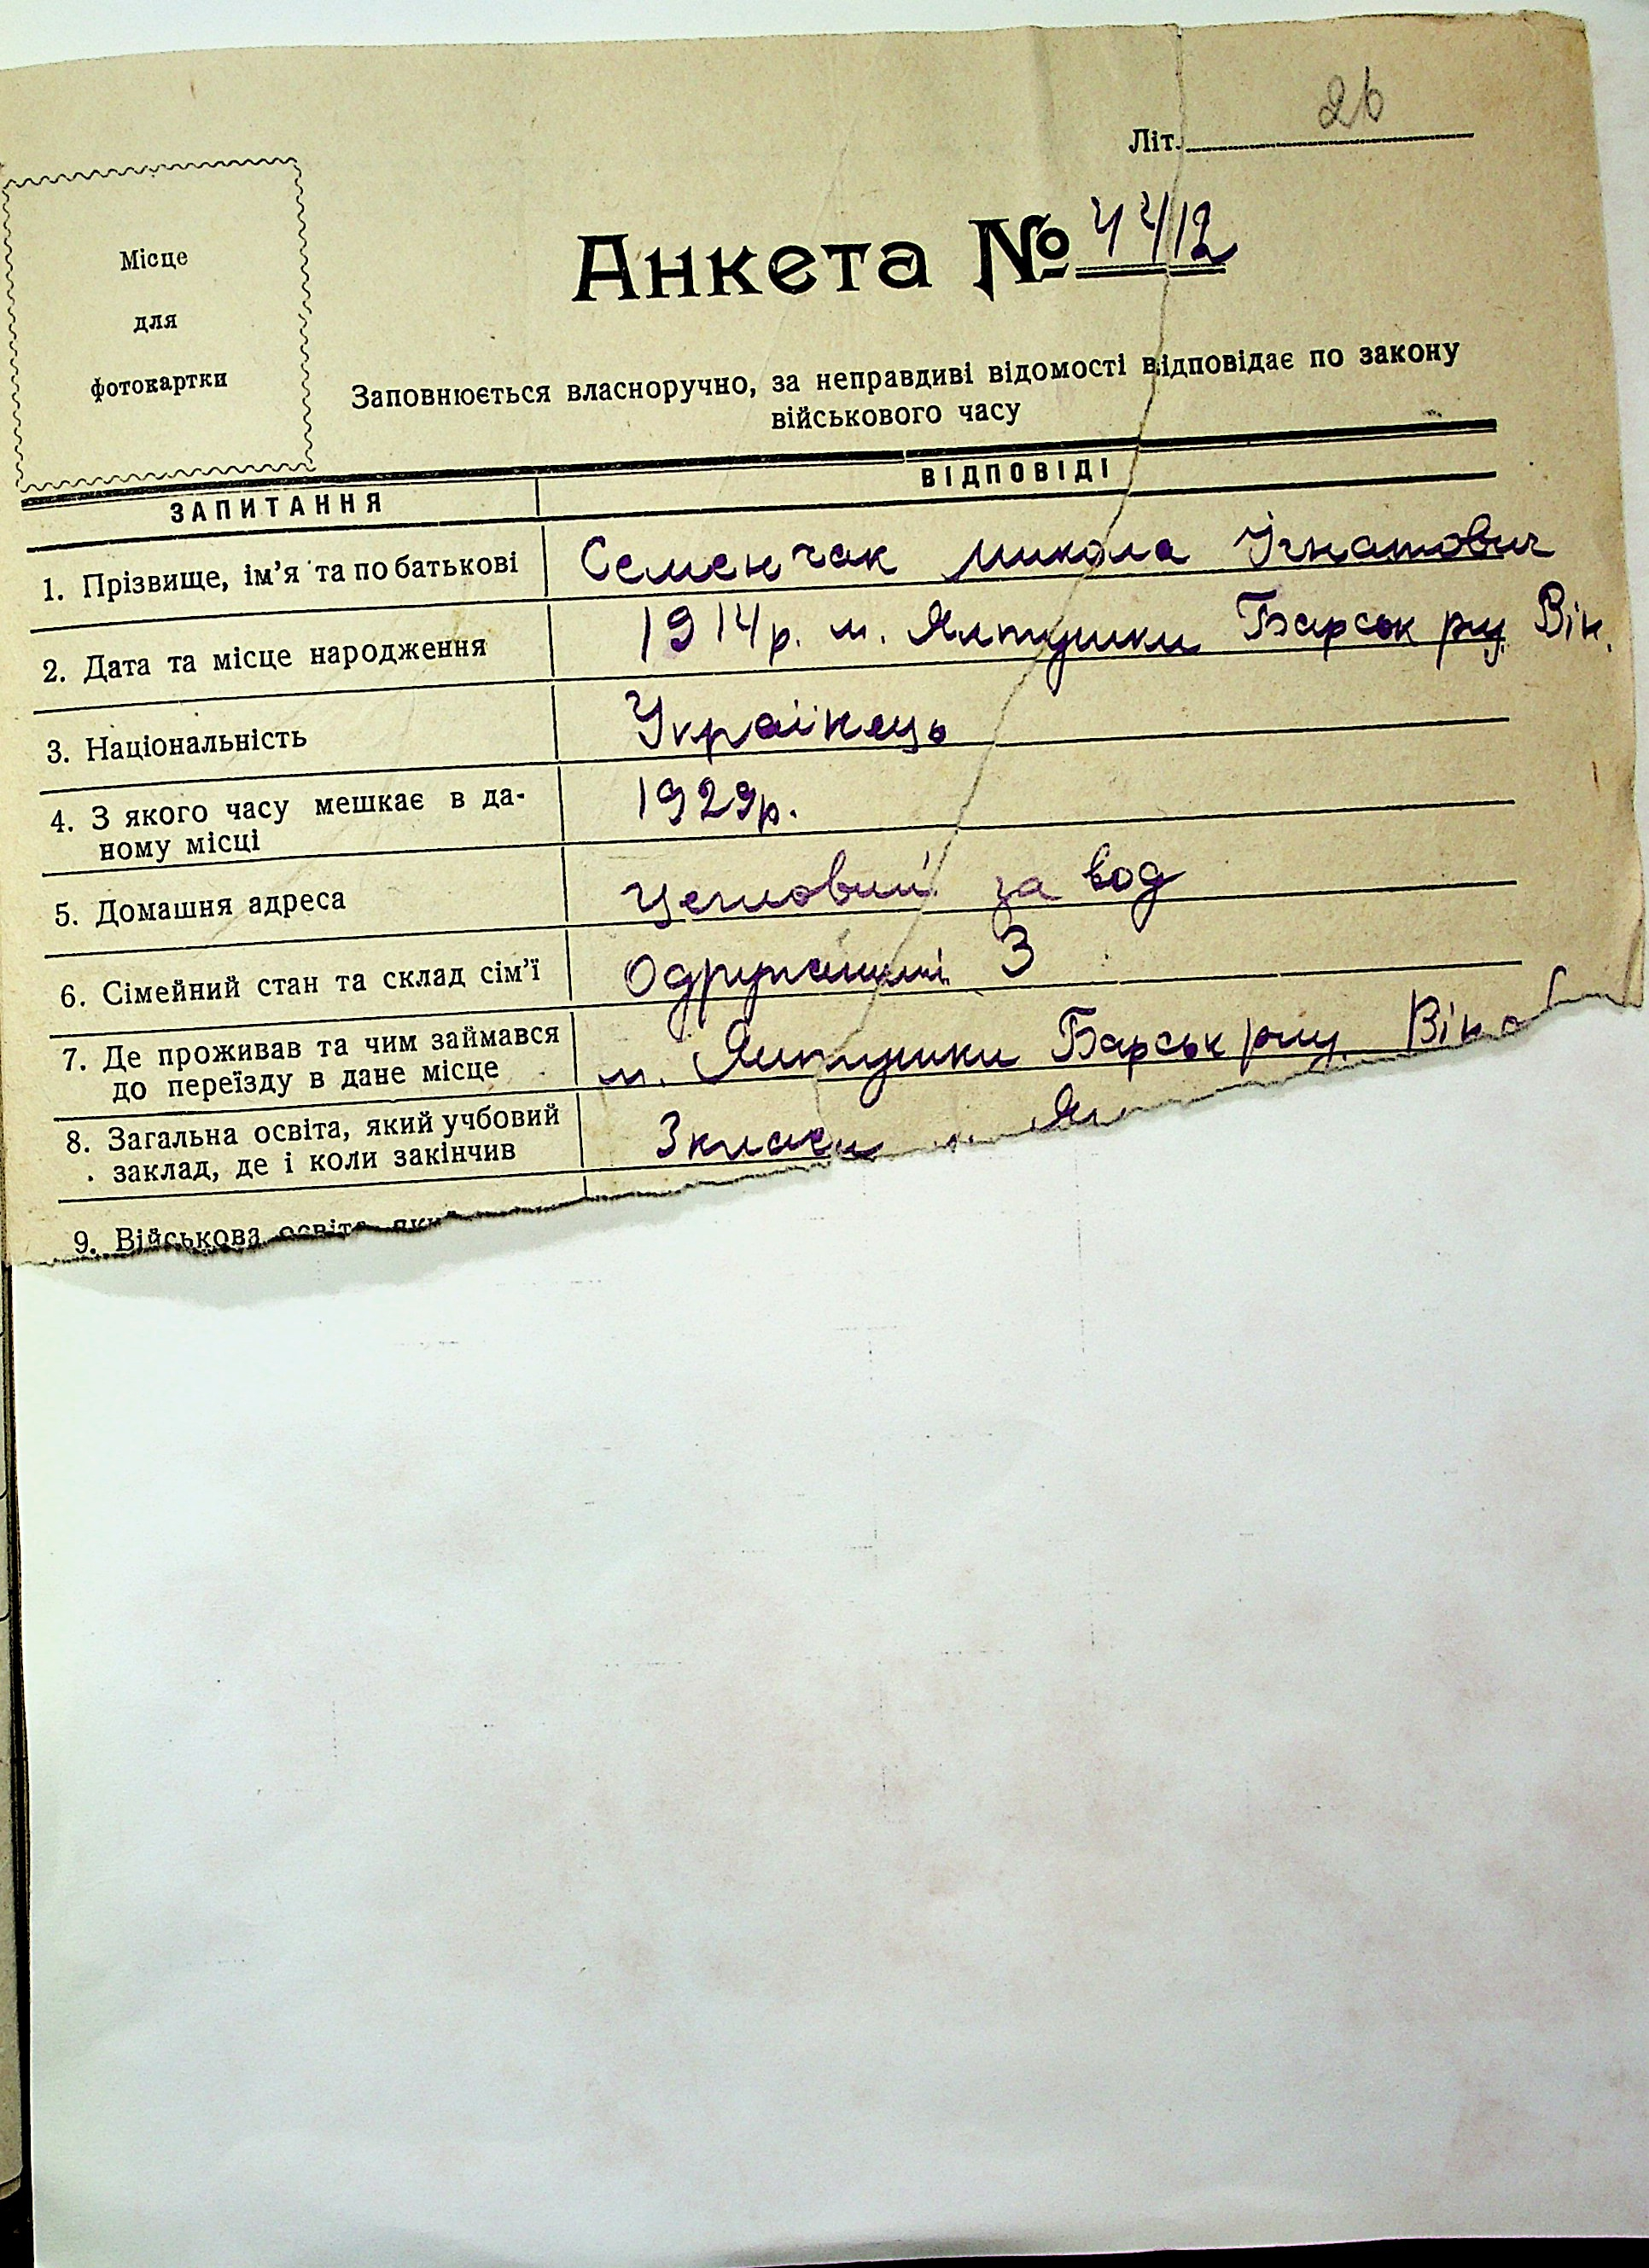 Літ. 26
Місце
для
фотокартки
Анкета № 4412
Заповнюється власноручно, за неправдиві відомості відповідає по закону
військового часу
ЗАПИТАННЯ ВІДПОВІДІ
1. Прізвище, ім’я та по батькові Семенчак микола Ігнатович
2. Дата та місце народження 1914р. м. Ялтушки Барськ р-у Він.
3. Національність Українець
4. З якого часу мешкає в да- 1929р.
ному місці
5. Домашня адреса Цегловий за вод
6. Сімейний стан та склад сім’ї Одружений 3
7. Де проживав та чим займався
до переїзду в дане місце м. Ялтушки Барськ р-у. Він
8. Загальна освіта, який учбовий
заклад, де і коли закінчив 3 класи
9. Військова освіта